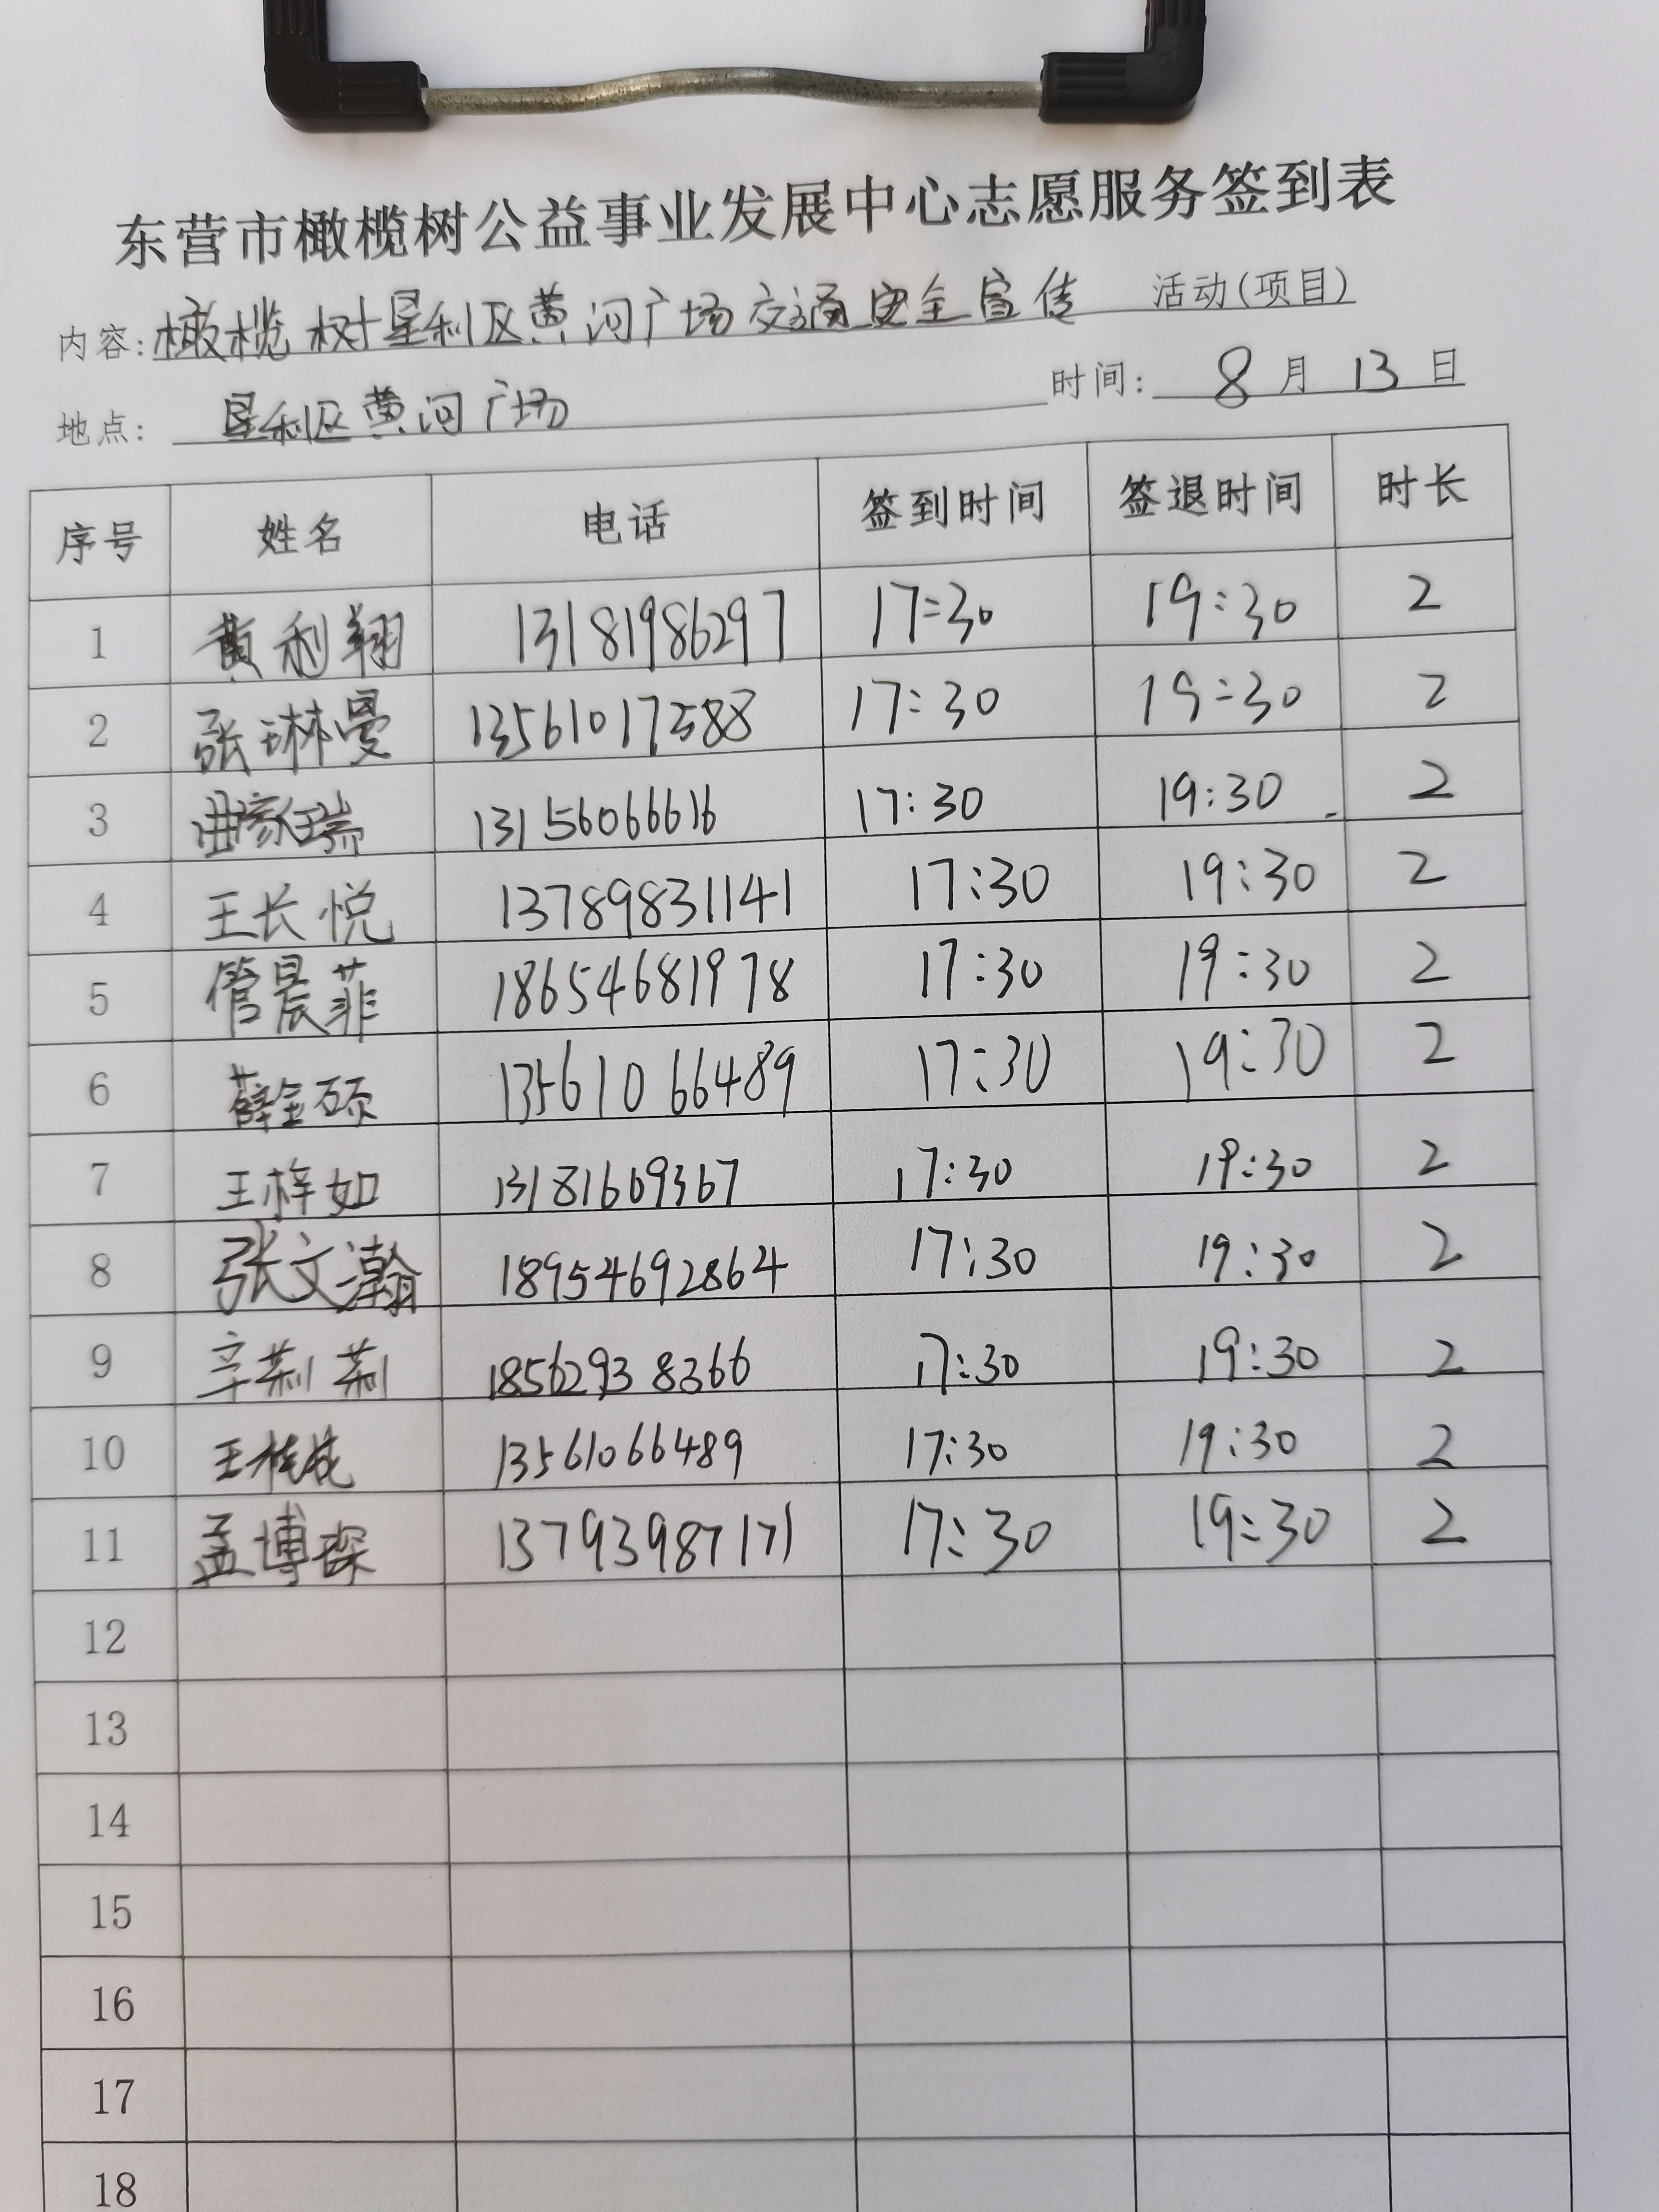 东营市橄榄树公益事业发展中心志愿服务签到表
内容:橄榄树垦利区黄河广场交通安全宣传 活动(项目)
地点: 垦利区黄河广场 时间: 8 月 13 日
序号 姓名 电话 签到时间 签退时间 时长
1 黄利翔 13181986297 17:30 19:30 2
2 张琳曼 13561017588 17:30 19:30 2
3 曲家瑞 13156066616 17:30 19:30 2
4 王长悦 13789831141 17:30 19:30 2
5 管晨菲 18654681978 17:30 19:30 2
6 薛金硕 13561066489 17:30 19:30 2
7 王梓如 13181669367 17:30 19:30 2
8 张文瀚 18954692864 17:30 19:30 2
9 辛荆荆 18562938366 17:30 19:30 2
10 王桂成 13561066489 17:30 19:30 2
11 孟博琛 13793987171 17:30 19:30 2
12
13
14
15
16
17
18